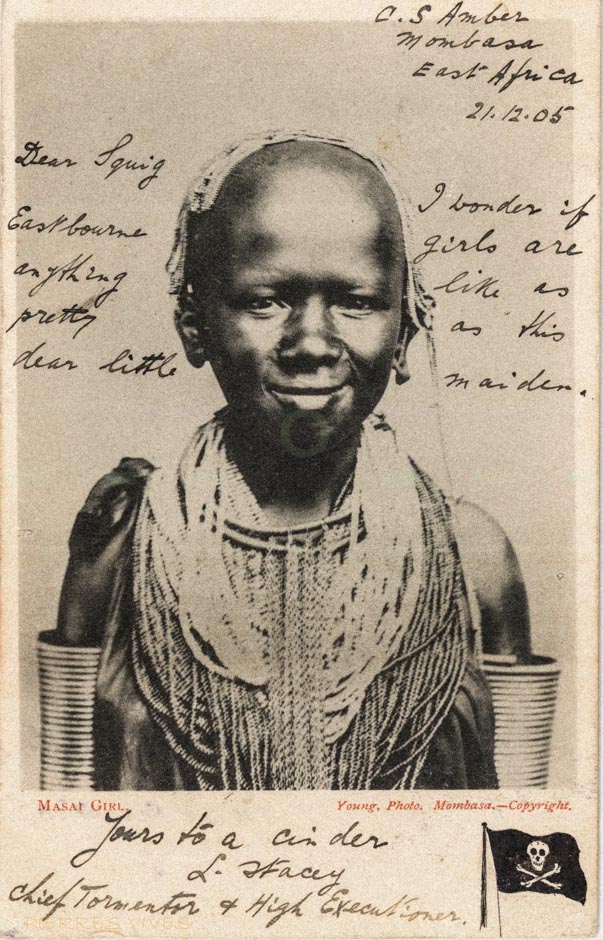 C. S Amber
Mombasa
East Africa
21.12.05
Dear Squig
I wonder if
Eastbourne
girls are
anything
like as
pretty
as this
dear little
maiden.
MASAI GIRL.
Young, Photo. Mombasa.—Copyright.
Yours to a cinder
L. Stacey
Chief Tormentor & High Executioner.
PIERRESVIVES